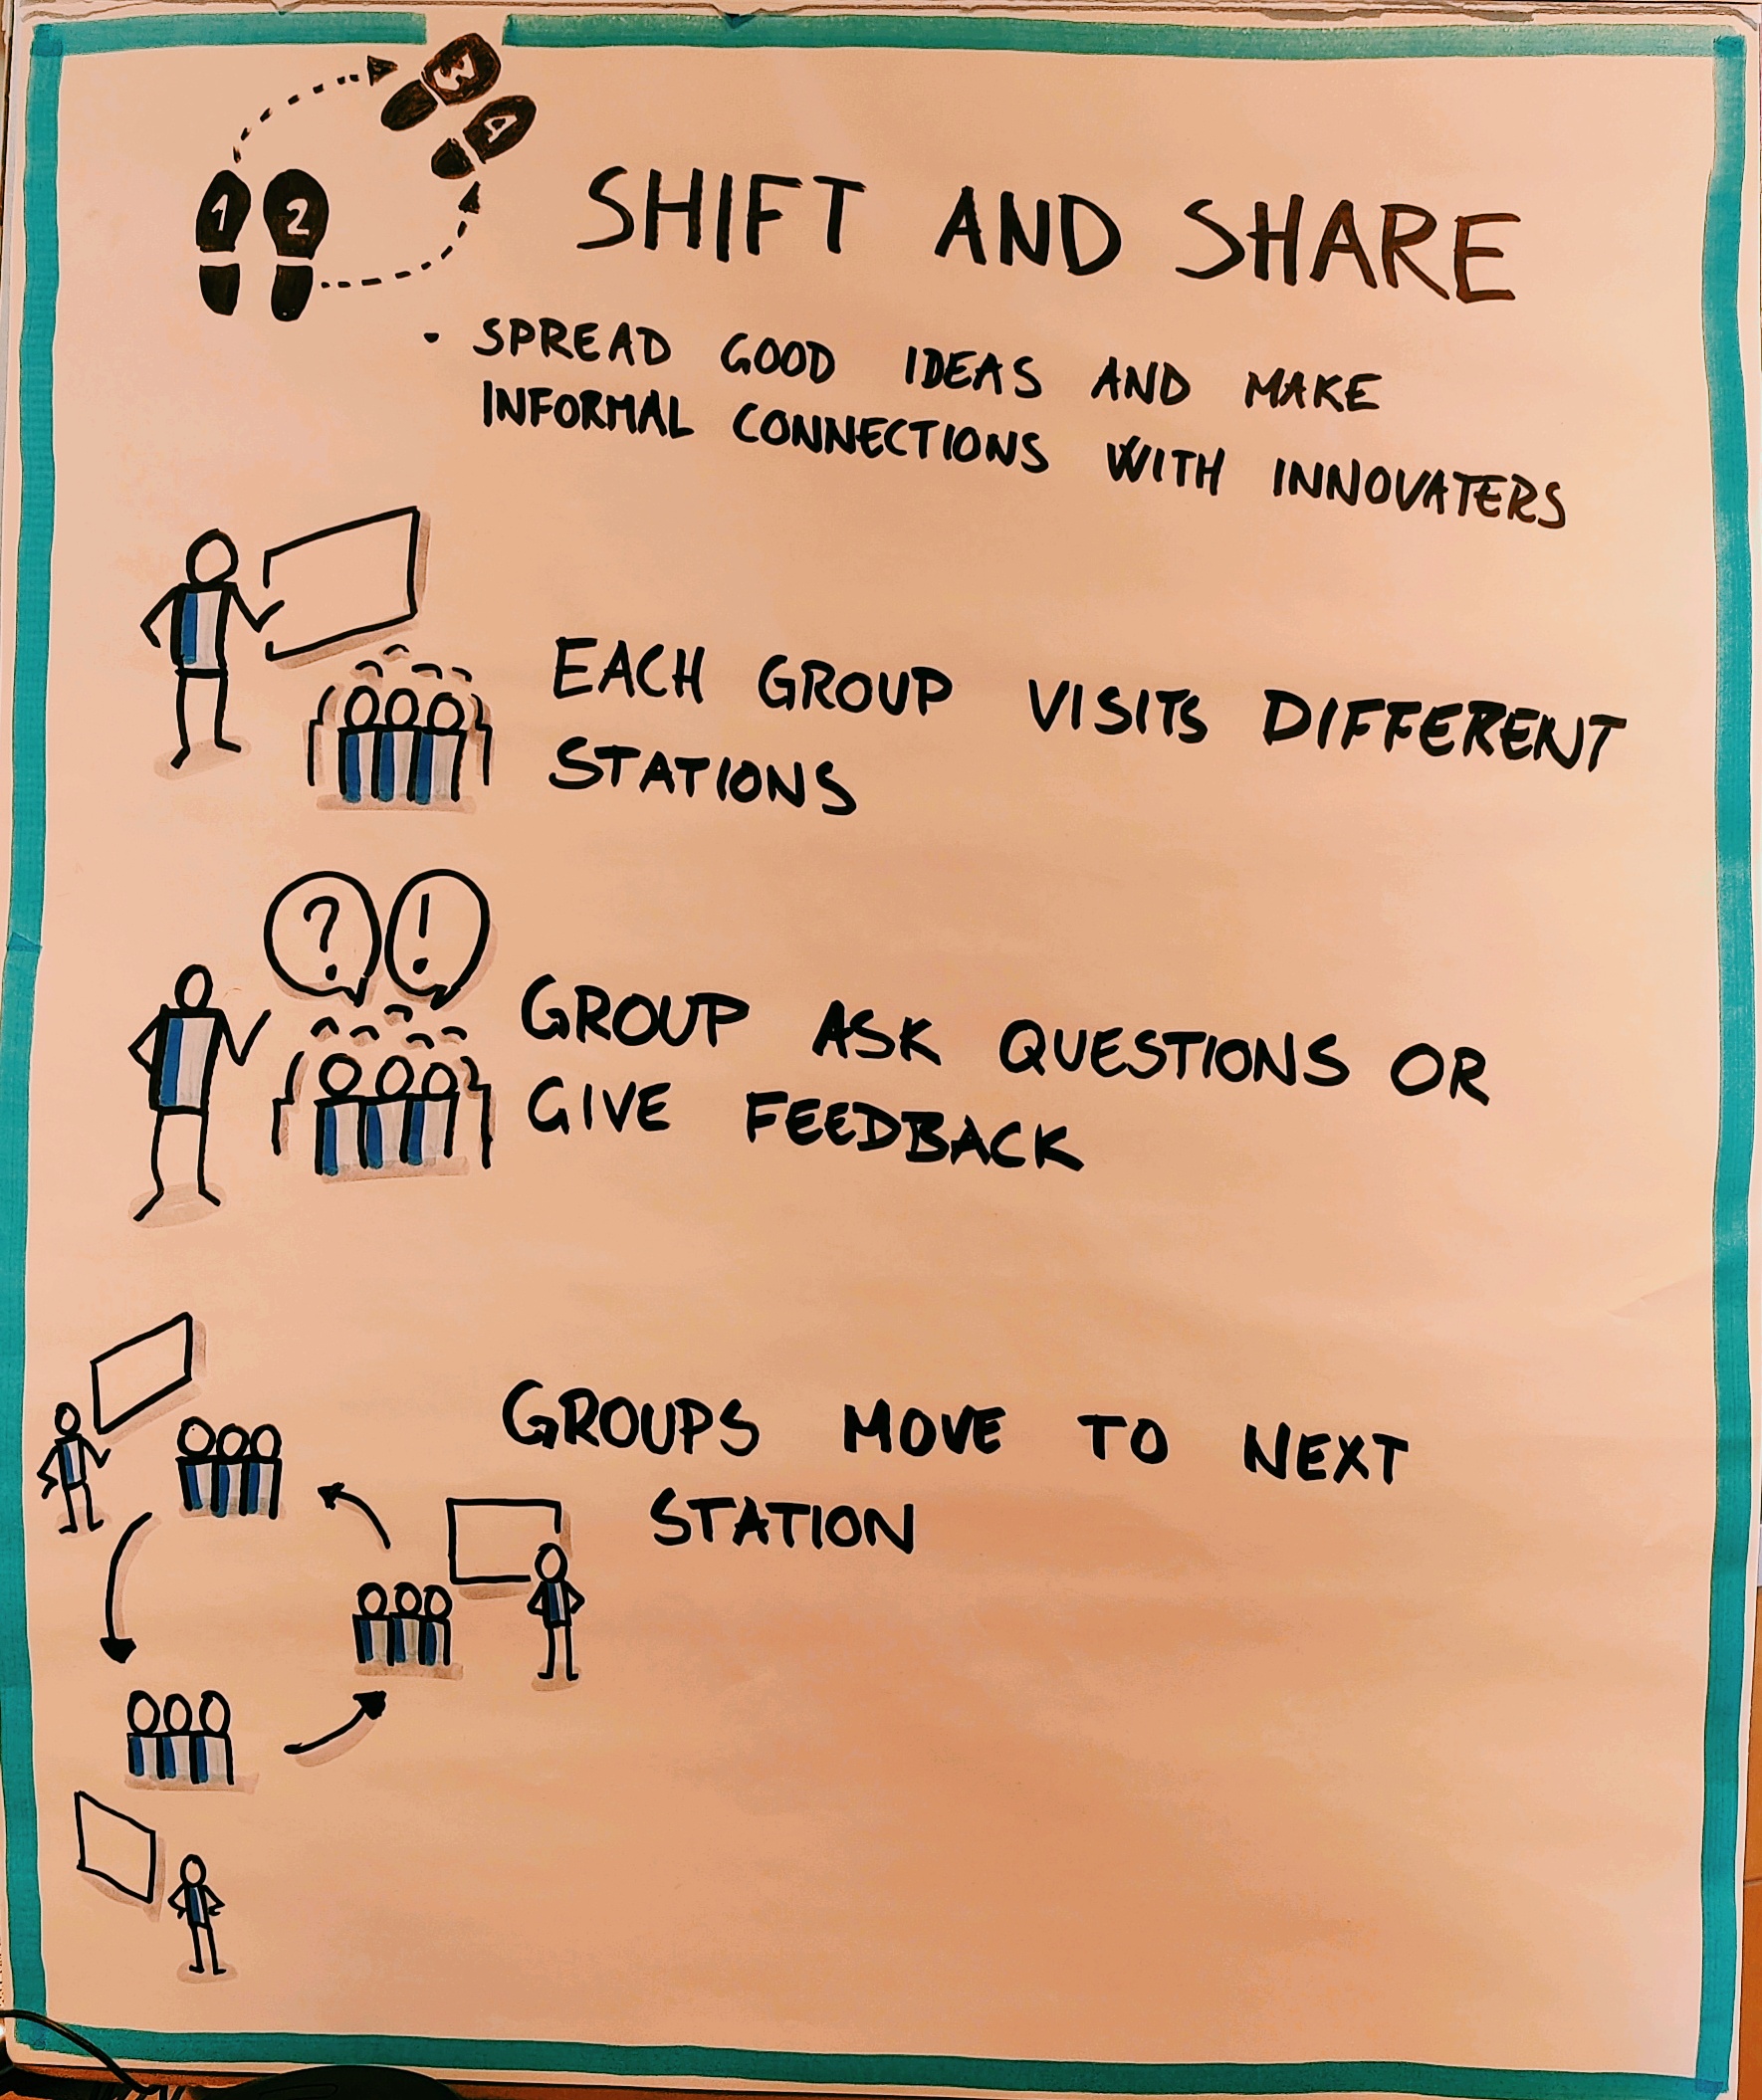 1 2 3 4
SHIFT AND SHARE
- SPREAD GOOD IDEAS AND MAKE
INFORMAL CONNECTIONS WITH INNOVATERS
EACH GROUP VISITS DIFFERENT
STATIONS
? !
GROUP ASK QUESTIONS OR
GIVE FEEDBACK
GROUPS MOVE TO NEXT
STATION